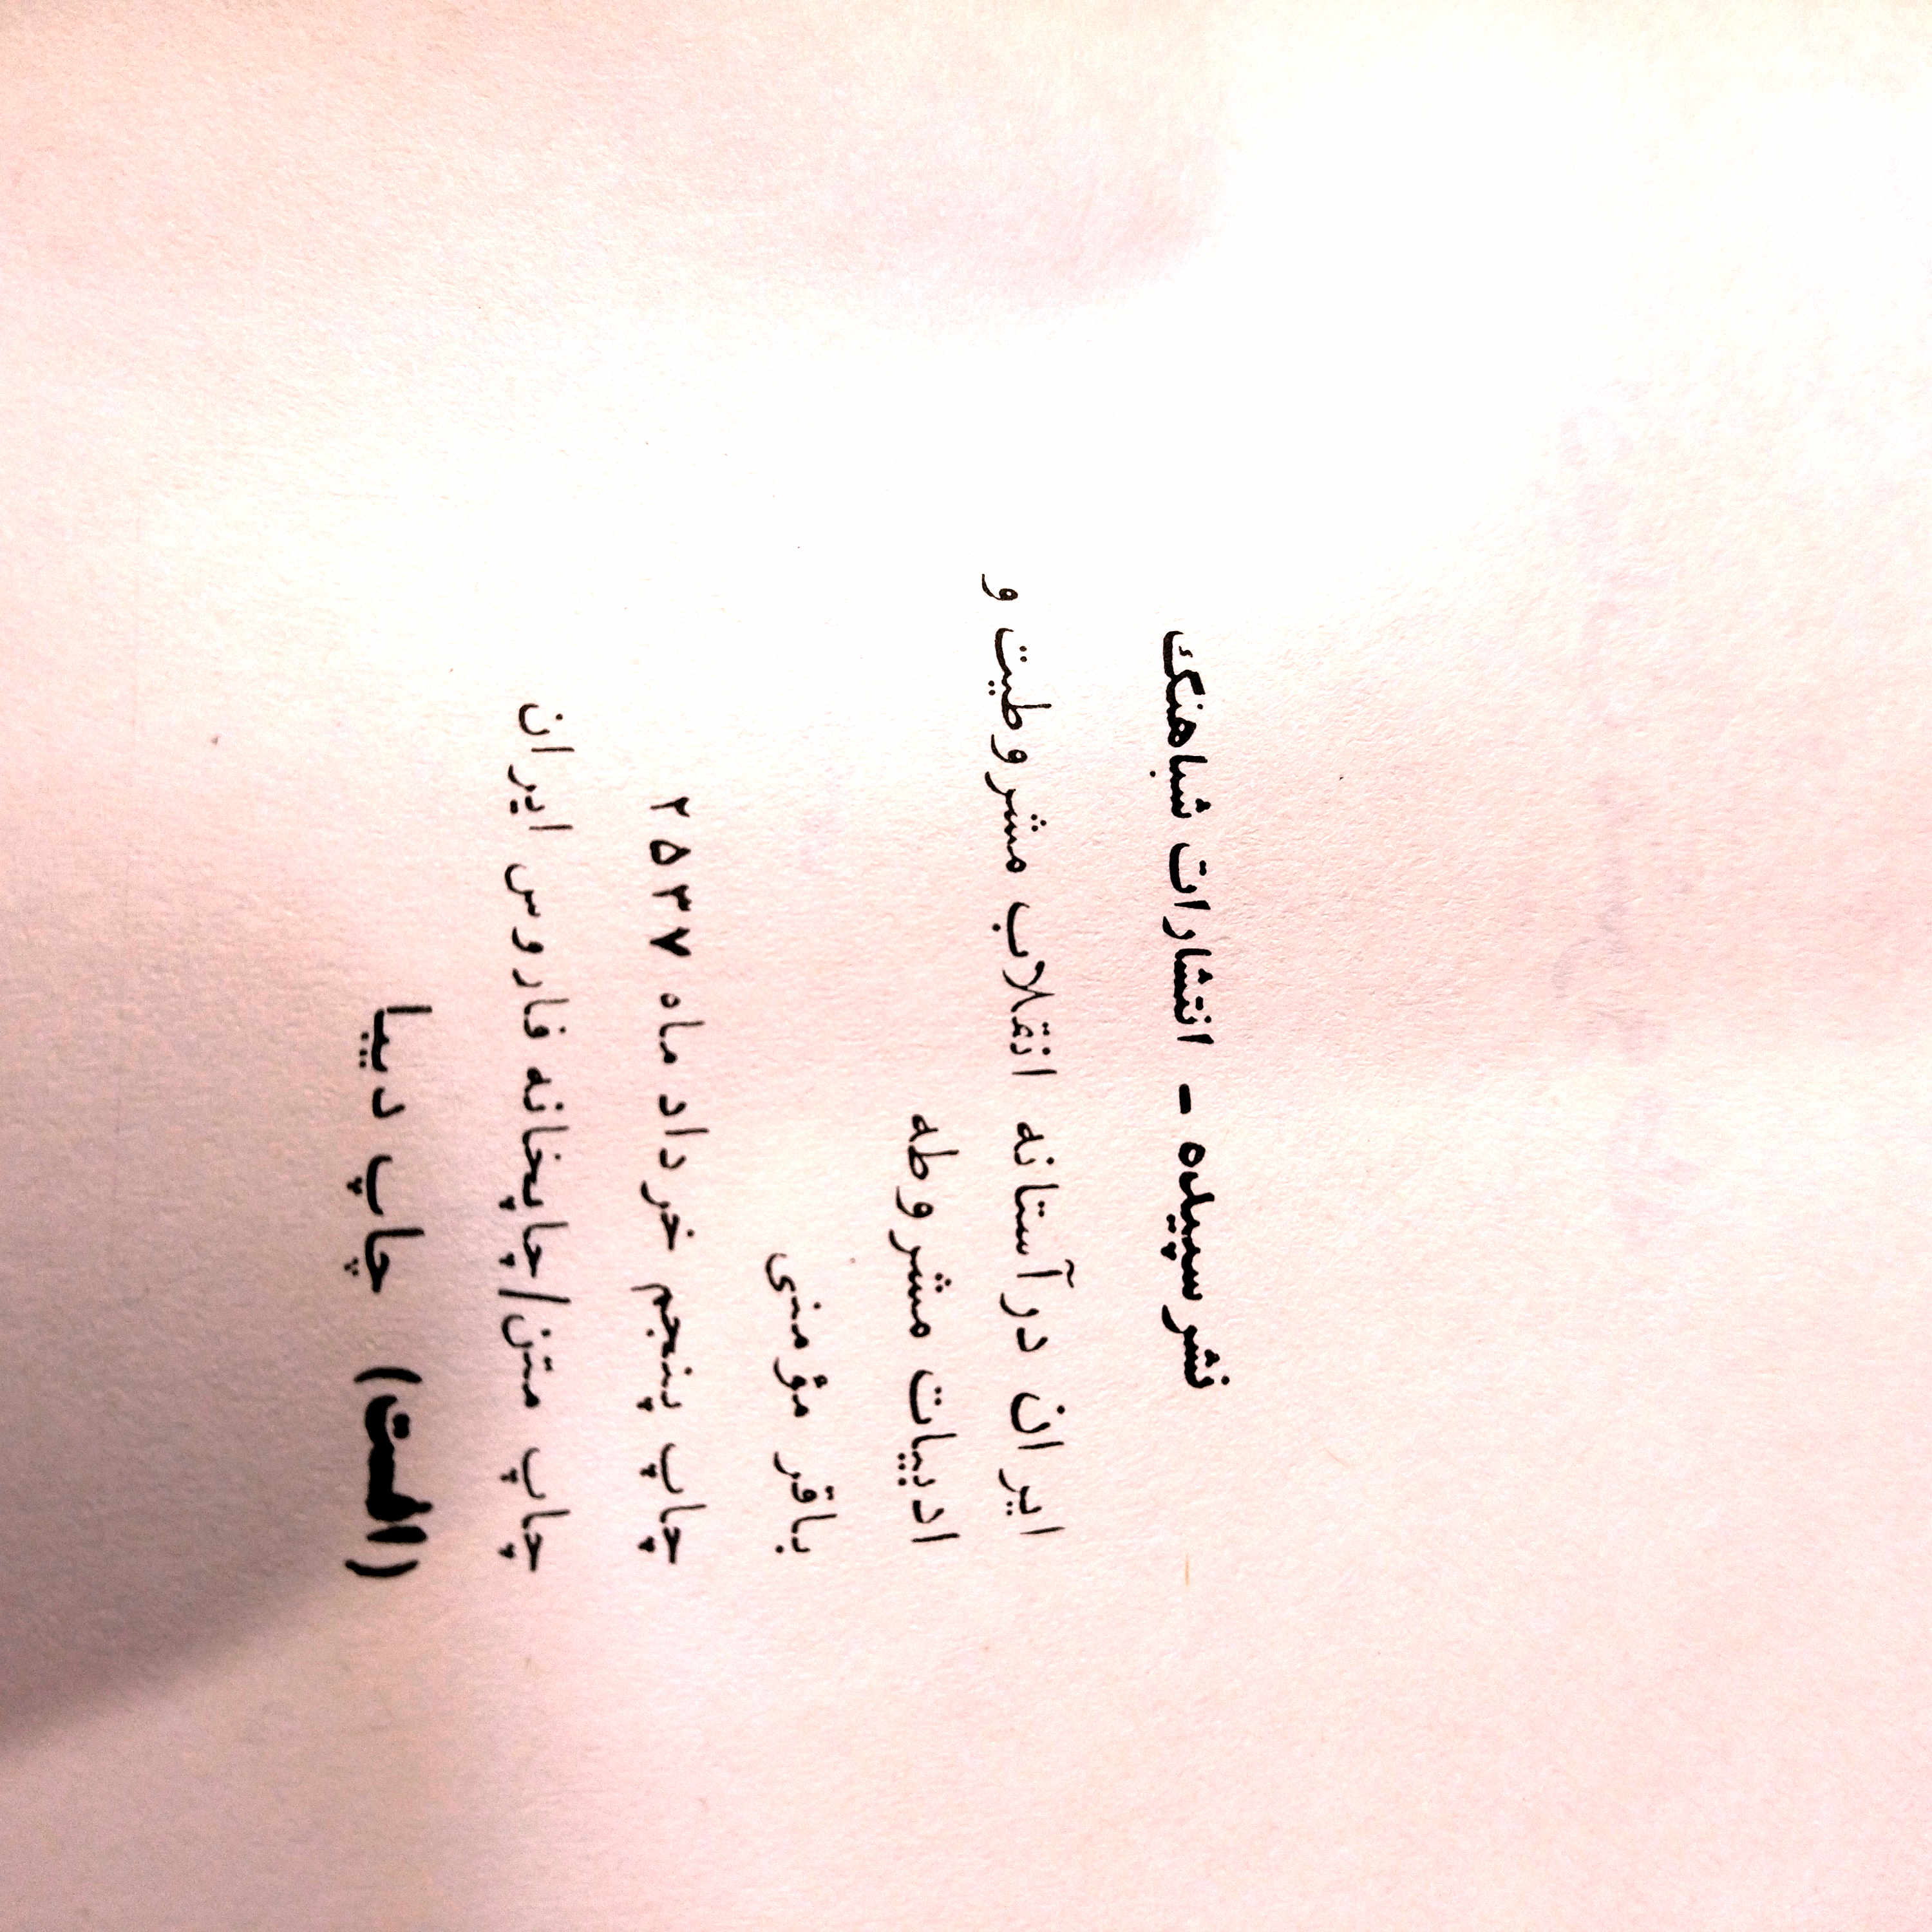 نشر سپیده - انتشارات شباهنگ
ایران در آستانه انقلاب مشروطیت و
ادبیات مشروطه
باقر مؤمنی
چاپ پنجم خرداد ماه ۲۵۳۷
چاپ متن/چاپخانه فاروس ایران
چاپ دیبا